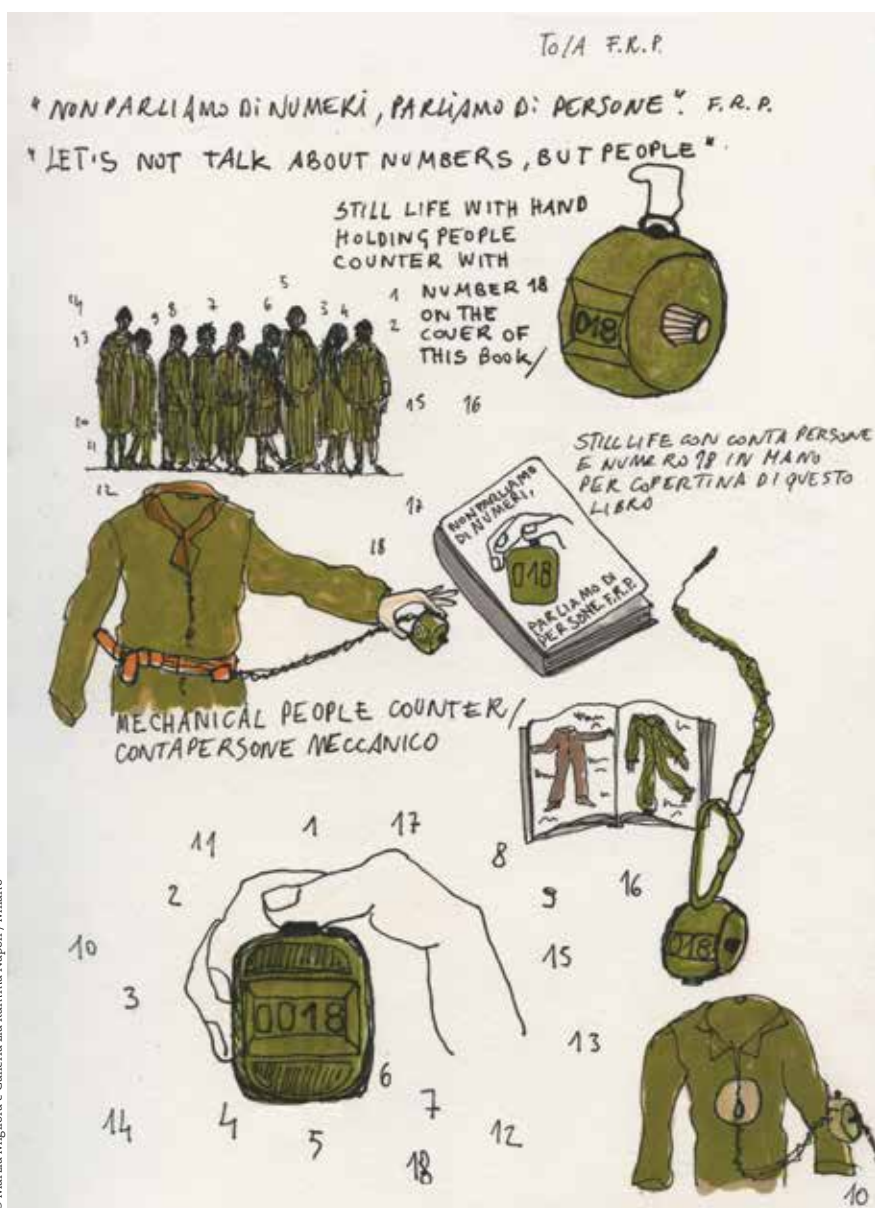 To/A F.R.P.
"NON PARLIAMO Di NUMERi, PARLiAMO Di PERSONE". F.R.P.
"LET'S NOT TALK ABOUT NUMBERS, BUT PEOPLE".
STILL LIFE WITH HAND
HOLDING PEOPLE
COUNTER WITH
NUMBER 18
ON THE
COVER OF
THIS BOOK/
018
5
14 9 8 7 6 3 4 1
13 2
10 15 16
11
STILL LIFE CON CONTA PERSONE
E NUMERO 18 IN MANO
PER COPERTINA DI QUESTO
LIBRO
12 17
18
NON PARLIAMO
DI NUMERI,
018
PARLIAMO DI
PERSONE F.R.P.
MECHANICAL PEOPLE COUNTER/
CONTAPERSONE MECCANICO
11 1 17
2 8
9 16
10 15
018
3
0018
13
6
14 4 7
5 12
18
10